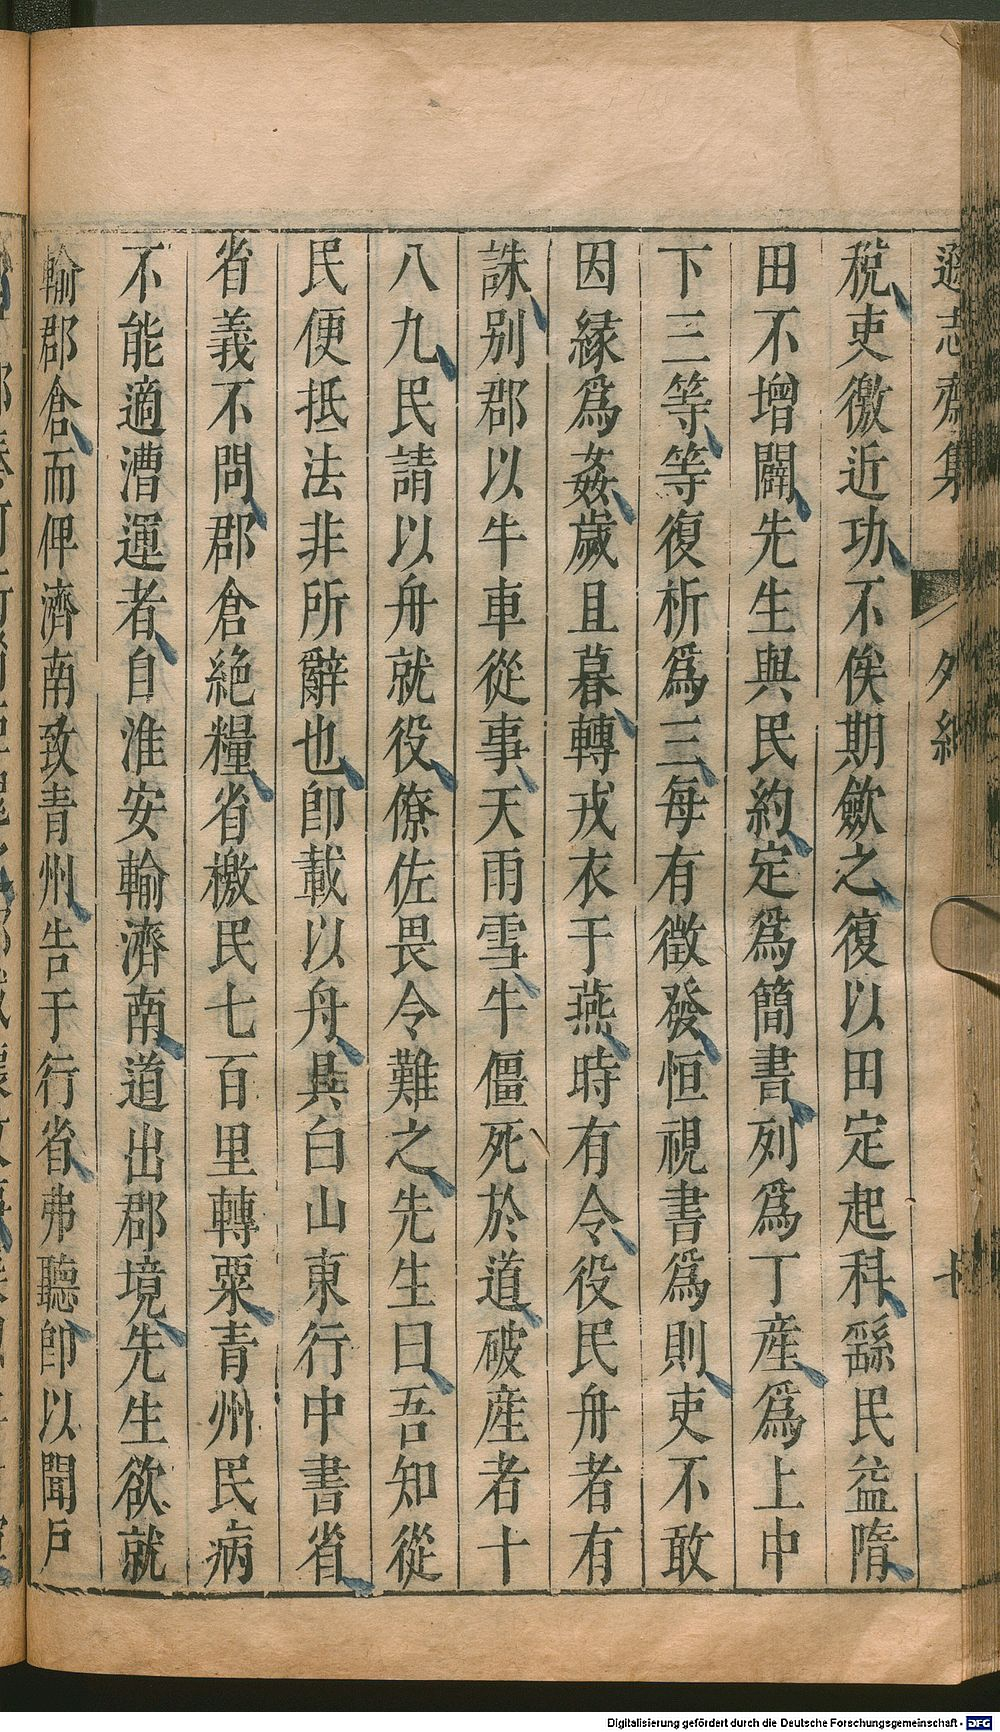 遜志齋集 外紀 十
稅吏徼近功不俟期斂之復以田定起科繇民益隋
田不增闢先生與民約定爲簡書列爲丁産爲上中
下三等等復析爲三每有徵發恒視書爲則吏不敢
因緣爲姦歲且暮轉戎衣于燕時有令役民舟者有
誅別郡以牛車從事天雨雪牛僵死於道破産者十
八九民請以舟就役僚佐畏令難之先生曰吾知從
民便抵法非所辭也卽載以舟具白山東行中書省
省義不問郡倉絶糧省檄民七百里轉粟青州民病
不能適漕運者自淮安輸濟南道出郡境先生欲就
輸郡倉而俾濟南致青州告于行省弗聽卽以聞戶
Digitalisierung gefördert durch die Deutsche Forschungsgemeinschaft - DFG